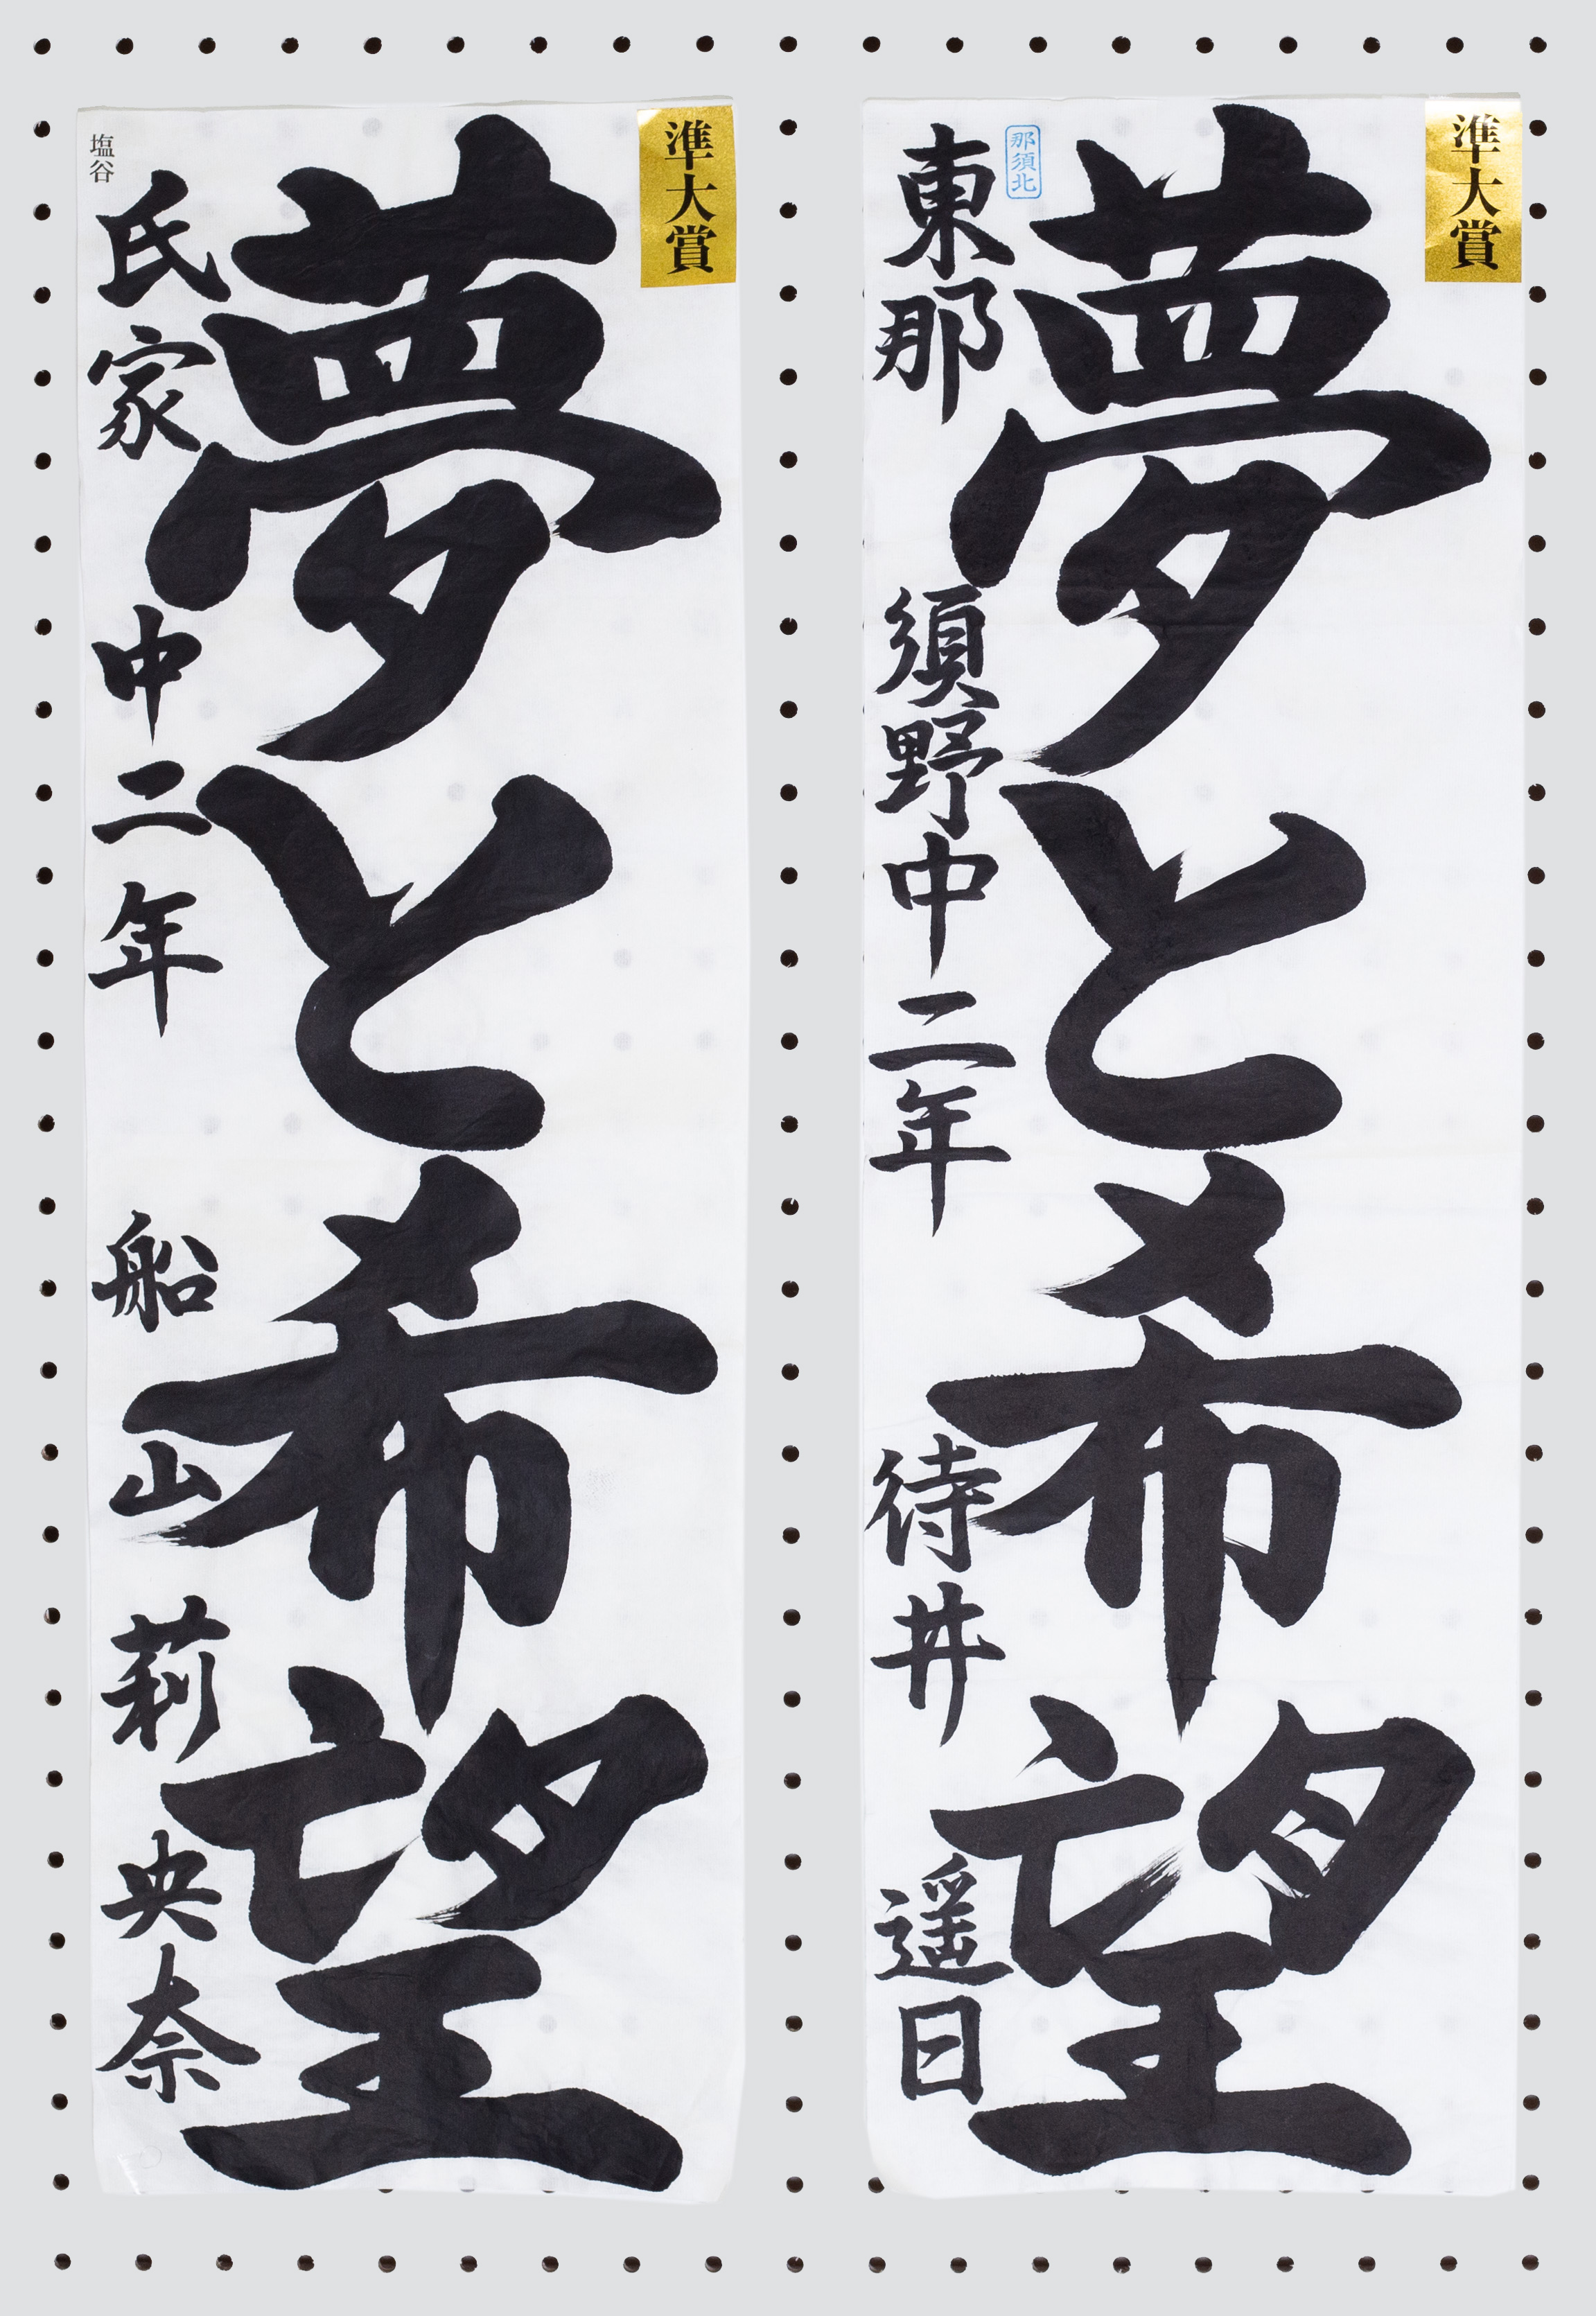 準大賞
夢と希望
那須北
東那須野中二年 待井遥日
準大賞
夢と希望
塩谷
氏家中二年 船山莉央奈